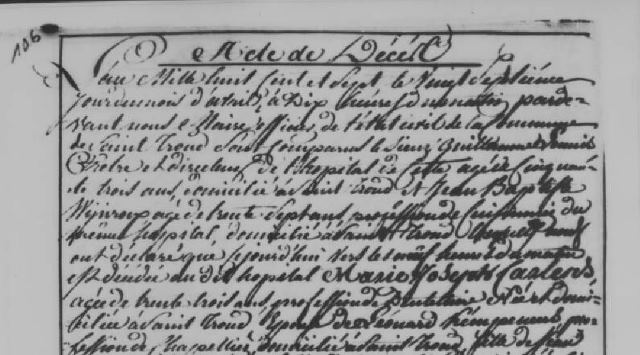 106
Acte de Décès
L'an Mille huit cent et Sept le Vingt Septième
jour du mois d'avril, à Dix heures du matin, parde-
vant nous Maire officier de l'état civil de la commune
de Saint Trond sont comparus le Sieur Guillaume
et directeur de l'hopital de cette agée Cinquan-
te trois ans, domicilié à Saint Trond et Jean Baptiste
agé de trente Sept ans, profession de du
même hospital, domicilié à Saint Trond
ont déclaré que aujourd'hui vers les neuf heures du matin
est décédée au dit hopital Marie Joseph
agée de trente trois ans, profession de Née et domi-
ciliée à Saint Trond Epouse de Léonard pro-
fession de Chapellier, domicilié à Saint Trond, fille de